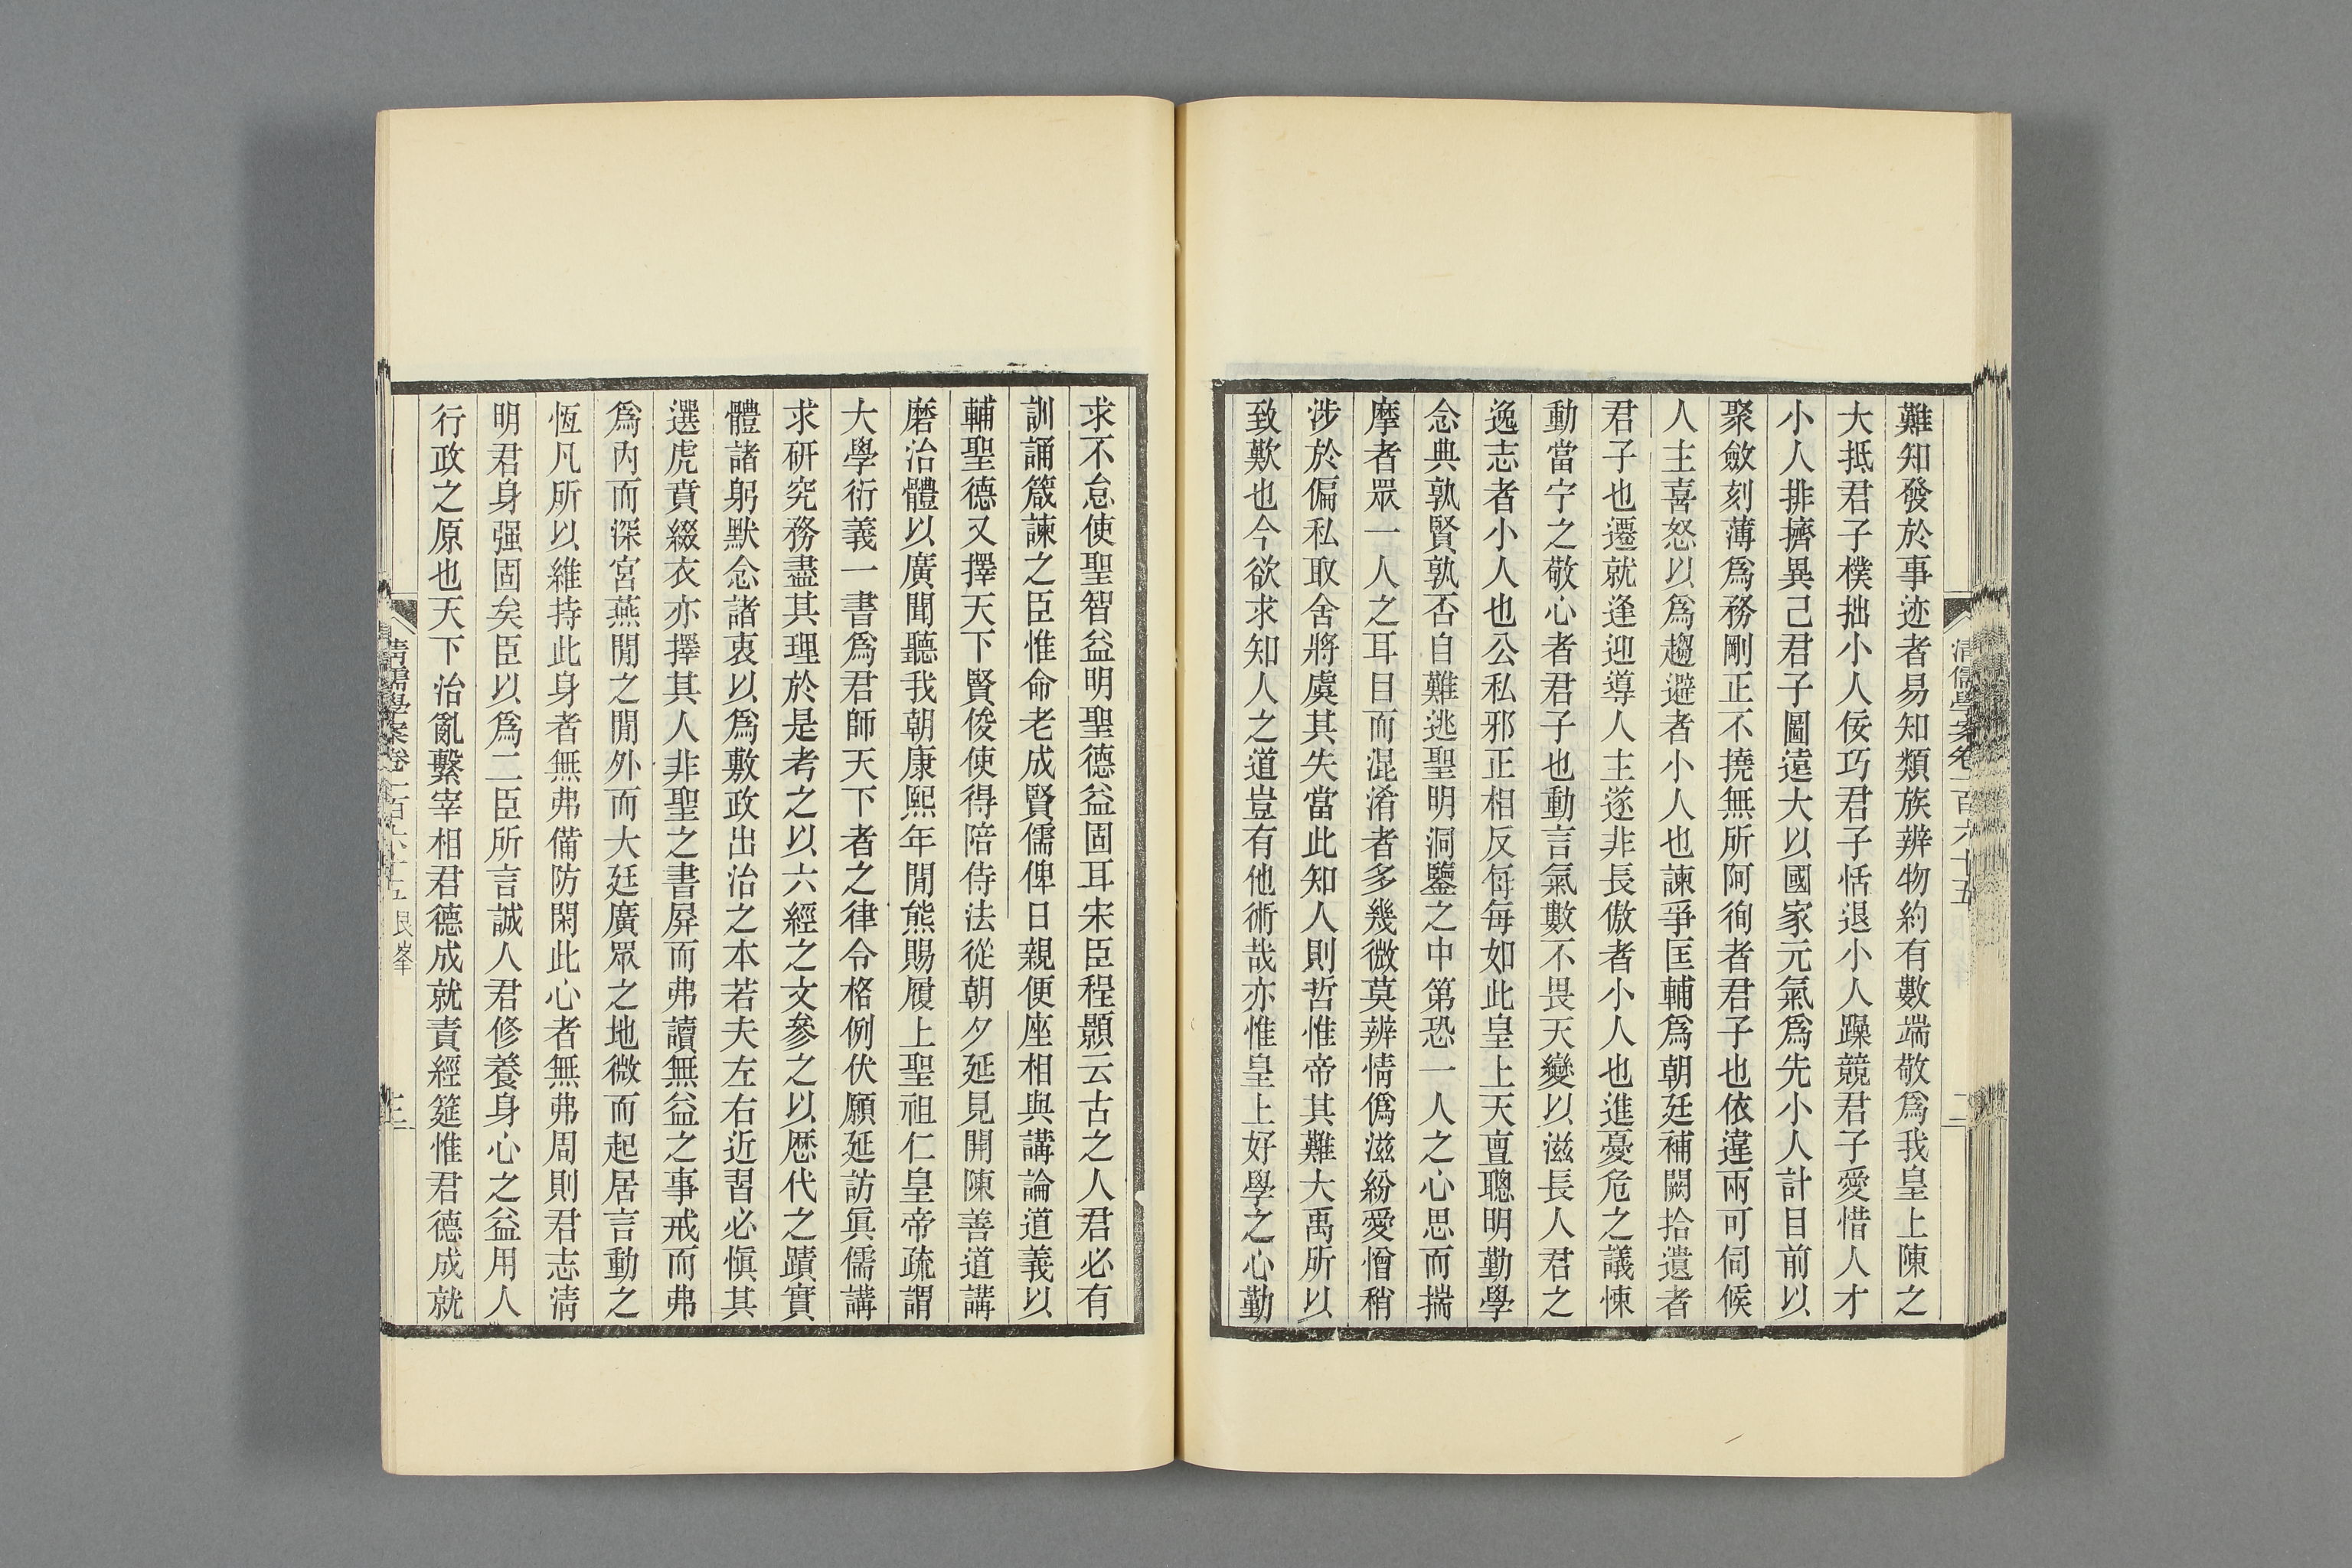 難知發於事迹者易知類族辨物約有數端敬爲我皇上陳之
大抵君子樸拙小人佞巧君子恬退小人躁競君子愛惜人才
小人排擠異己君子圖遠大以國家元氣爲先小人計目前以
聚斂刻薄爲務剛正不撓無所阿徇者君子也依違兩可伺候
人主喜怒以爲趨避者小人也諫爭匡輔爲朝廷補闕拾遺者
君子也遷就逢迎導人主遂非長傲者小人也進憂危之議悚
動當宁之敬心者君子也動言氣數不畏天變以滋長人君之
逸志者小人也公私邪正相反每每如此皇上天亶聰明勤學
念典孰賢孰否自難逃聖明洞鑒之中第恐一人之心思而揣
摩者眾一人之耳目而混淆者多幾微莫辨情僞滋紛愛憎稍
涉於偏私取舍將虞其失當此知人則哲惟帝其難大禹所以
致歎也今欲求知人之道豈有他術哉亦惟皇上好學之心勤
清儒學案卷一百六十五
二
求不怠使聖智益明聖德益固耳宋臣程顥云古之人君必有
訓誦箴諫之臣惟命老成賢儒俾日親便座相與講論道義以
輔聖德又擇天下賢俊使得陪侍法從朝夕延見開陳善道講
磨治體以廣聞聽我朝康熙年閒熊賜履上聖祖仁皇帝疏謂
大學衍義一書爲君師天下者之律令格例伏願延訪眞儒講
求研究務盡其理於是考之以六經之文參之以歷代之蹟實
體諸躬默念諸衷以爲敷政出治之本若夫左右近習必愼其
選虎賁綴衣亦擇其人非聖之書屏而弗讀無益之事戒而弗
爲內而深宮燕閒之閒外而大廷廣眾之地微而起居言動之
恆凡所以維持此身者無弗備防閑此心者無弗周則君志淸
明君身强固矣臣以爲二臣所言誠人君修養身心之益用人
行政之原也天下治亂繫宰相君德成就責經筵惟君德成就
清儒學案卷一百六十五 艮峯